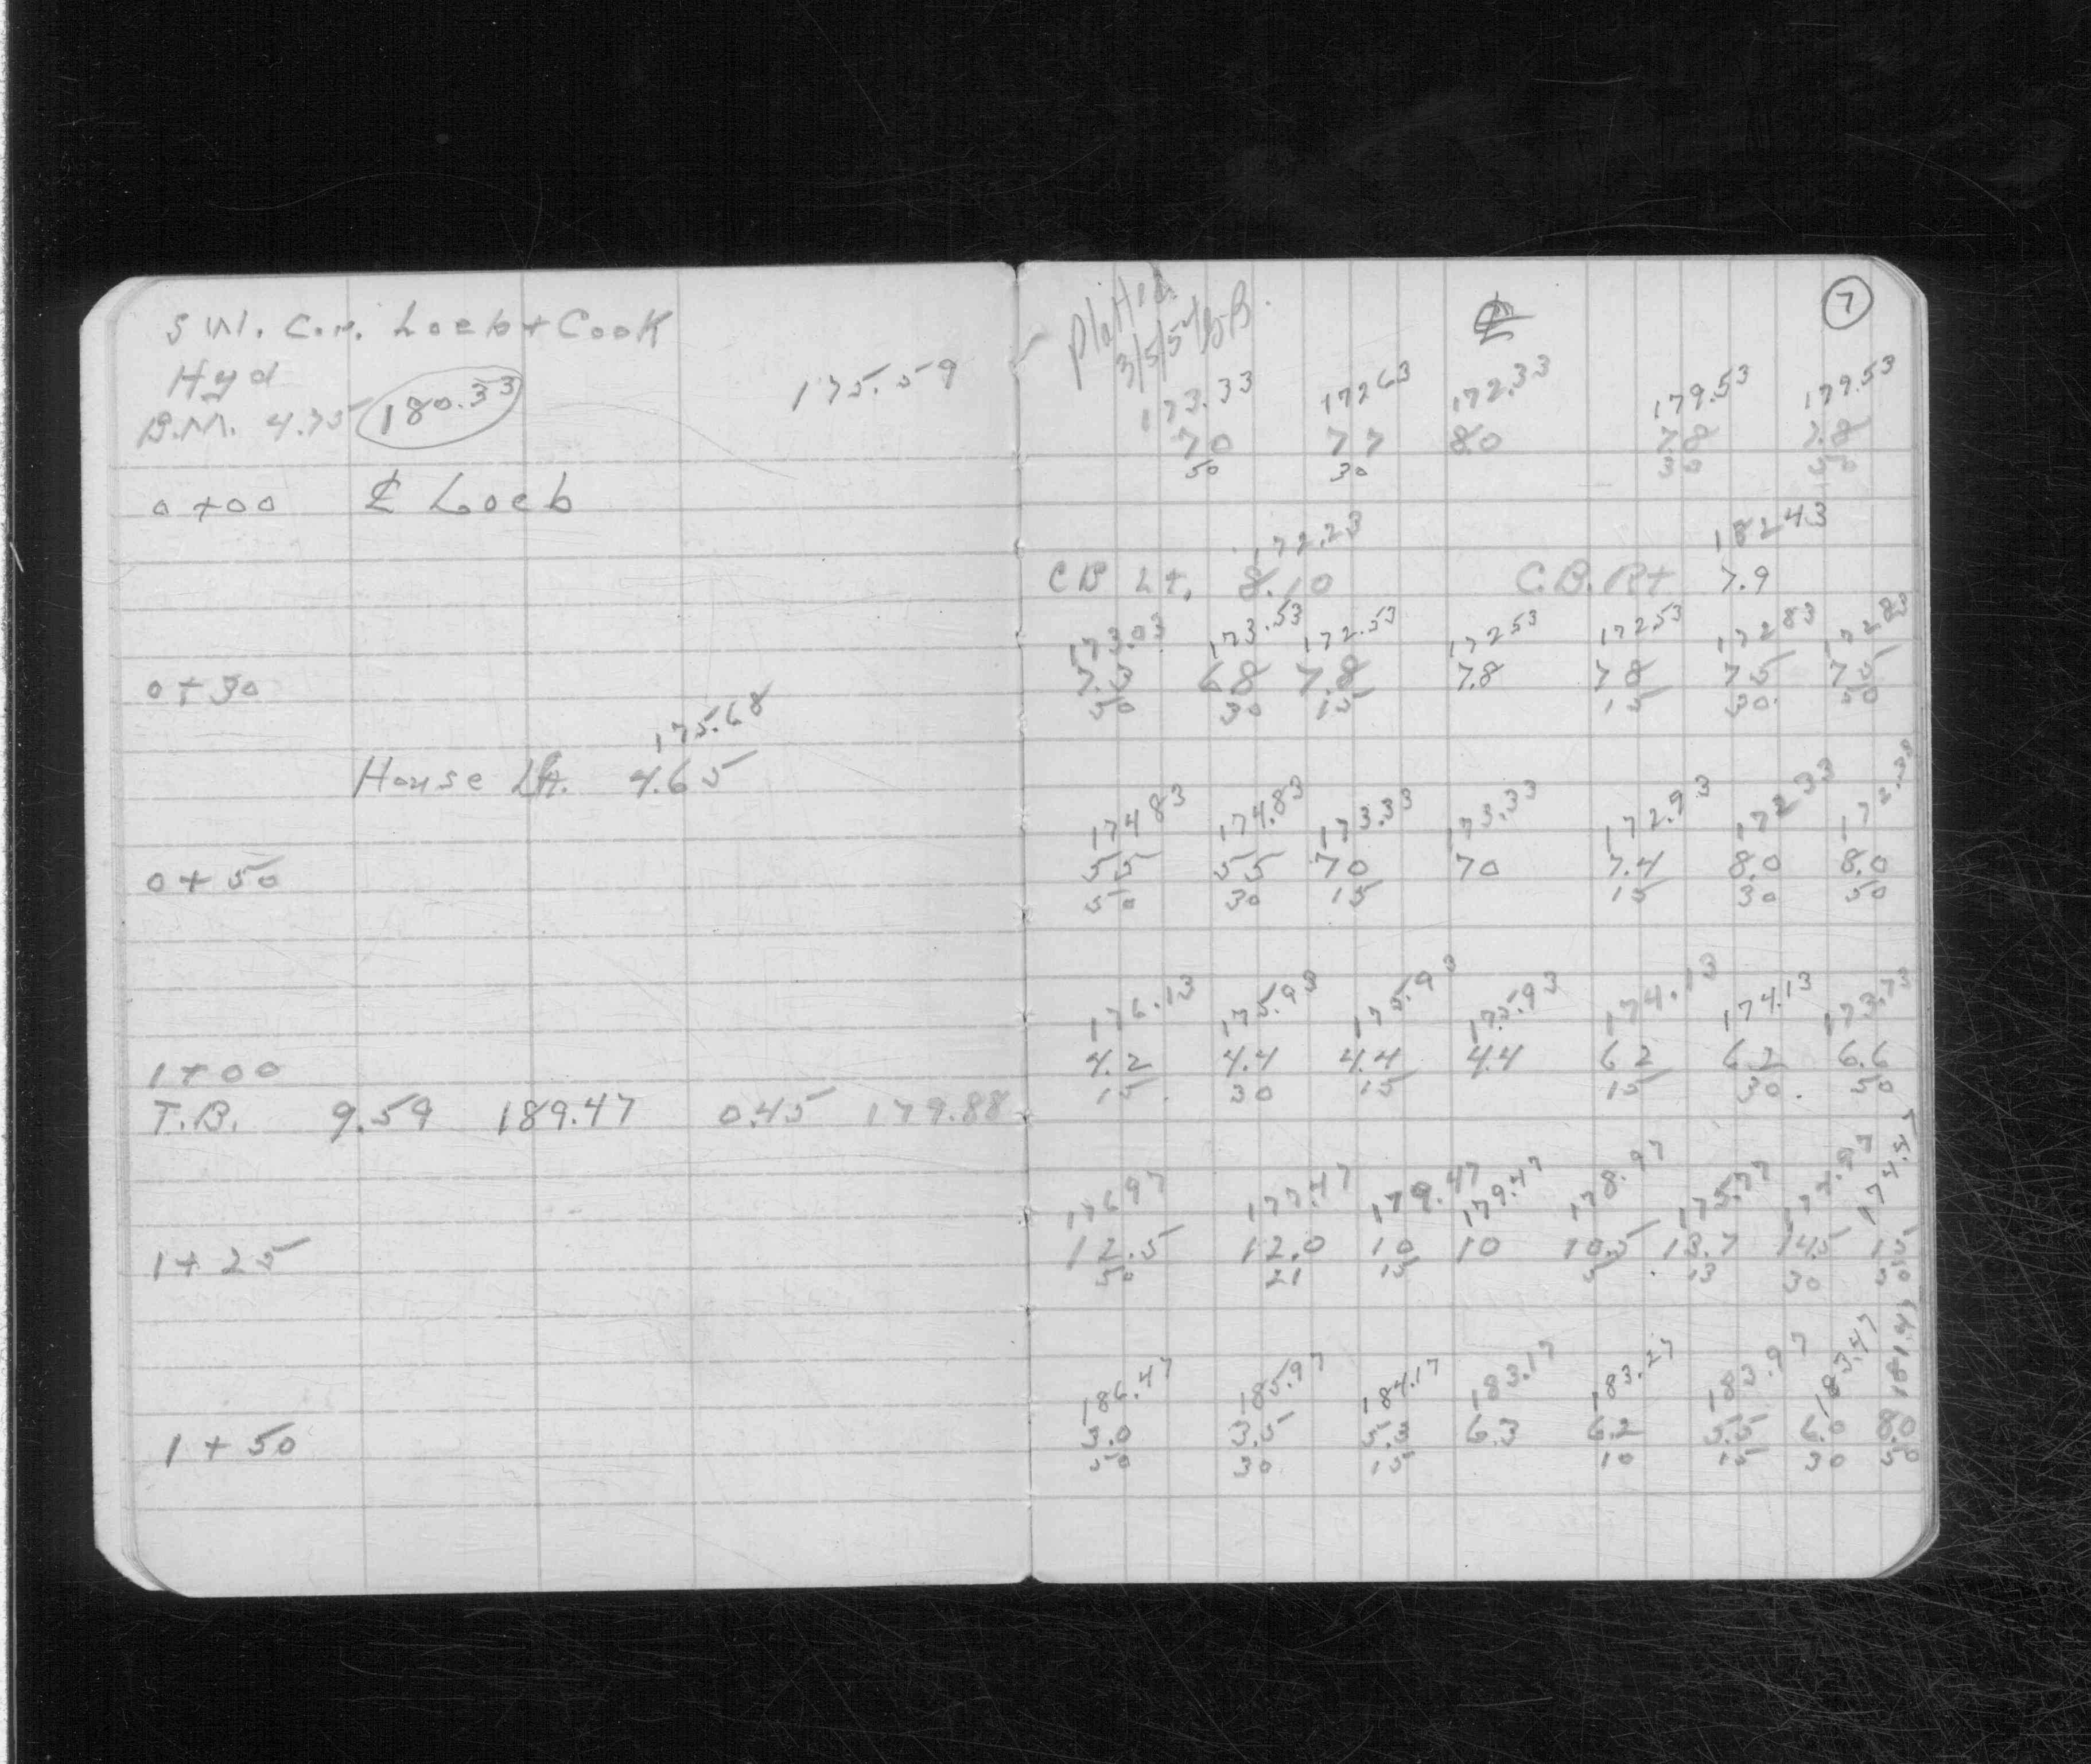 S.W. Cor. Loeb + Cook
Hyd
B.M. 4.75 180.33 175.59
0+00 ℄ Loeb
0+30
175.68
House Lt. 4.65
0+50
1+00
T.B. 9.59 189.47 0.45 179.88
1+25
1+50
Platted
3/5/54 ℄ 7
173.33 172.63 172.33 179.53 179.53
70 77 80 7.8 7.8
50 30 30 50
172.23 182.43
C B Lt. 8.10 C.B. Rt 7.9
173.03 173.53 172.53 172.53 172.53 172.83 172.83
7.3 68 7.8 7.8 78 75 75
50 30 15 15 30 50
174.83 174.83 173.33 173.33 172.93 172.33 172.33
55 55 70 70 7.4 8.0 8.0
50 30 15 15 30 50
176.13 175.93 175.93 175.93 174.13 174.13 173.73
4.2 4.4 4.4 4.4 62 62 6.6
15 30 15 15 30 50
176.97 177.47 179.47 179.47 178.97 175.77 174.97 174.47
12.5 12.0 10 10 10.5 13.7 14.5 15
50 21 15 5 13 30 50
186.47 185.97 184.17 183.17 183.27 183.97 183.47 181.47
3.0 3.5 5.3 6.3 6.2 5.5 6.0 8.0
50 30 15 10 15 30 50